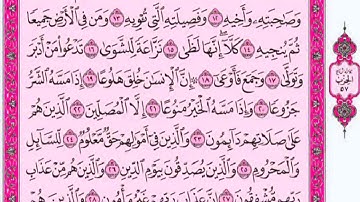 وَصَٰحِبَتِهِۦ وَأَخِيهِ ١٢ وَفَصِيلَتِهِ ٱلَّتِي تُـْٔوِيهِ ١٣ وَمَن فِي ٱلْأَرْضِ جَمِيعًا
ثُمَّ يُنجِيهِ ١٤ كَلَّآ إِنَّهَا لَظَىٰ ١٥ نَزَّاعَةً لِّلشَّوَىٰ ١٦ تَدْعُوا۟ مَنْ أَدْبَرَ
وَتَوَلَّىٰ ١٧ وَجَمَعَ فَأَوْعَىٰٓ ١٨ إِنَّ ٱلْإِنسَٰنَ خُلِقَ هَلُوعًا ١٩ إِذَا مَسَّهُ ٱلشَّرُّ
جَزُوعًا ٢٠ وَإِذَا مَسَّهُ ٱلْخَيْرُ مَنُوعًا ٢١ إِلَّا ٱلْمُصَلِّينَ ٢٢ ٱلَّذِينَ هُمْ
عَلَىٰ صَلَاتِهِمْ دَآئِمُونَ ٢٣ وَٱلَّذِينَ فِيٓ أَمْوَٰلِهِمْ حَقٌّ مَّعْلُومٌ ٢٤ لِّلسَّآئِلِ
وَٱلْمَحْرُومِ ٢٥ وَٱلَّذِينَ يُصَدِّقُونَ بِيَوْمِ ٱلدِّينِ ٢٦ وَٱلَّذِينَ هُم مِّنْ عَذَابِ
رَبِّهِم مُّشْفِقُونَ ٢٧ إِنَّ عَذَابَ رَبِّهِمْ غَيْرُ مَأْمُونٍ ٢٨ وَٱلَّذِينَ هُمْ
الحزب
٥٧